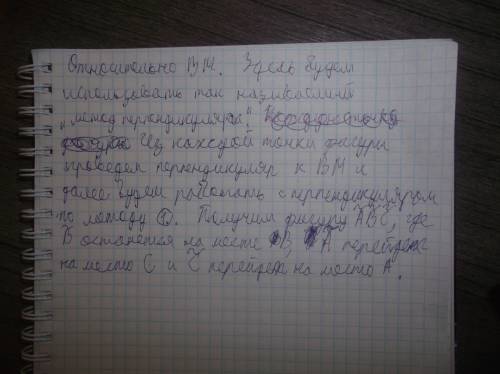 Относительно ВМ. Здесь будем
использовать так называемый
"метод перпендикуляра".
Из каждой точки фигуры
проведем перпендикуляр к ВМ и
далее будем работать с перпендикуляром
по методу ①. Получим фигуру ÃB̃C̃, где
B̃ останется на месте В, Ã перейдет
на место С и C̃ перейдет на место А.